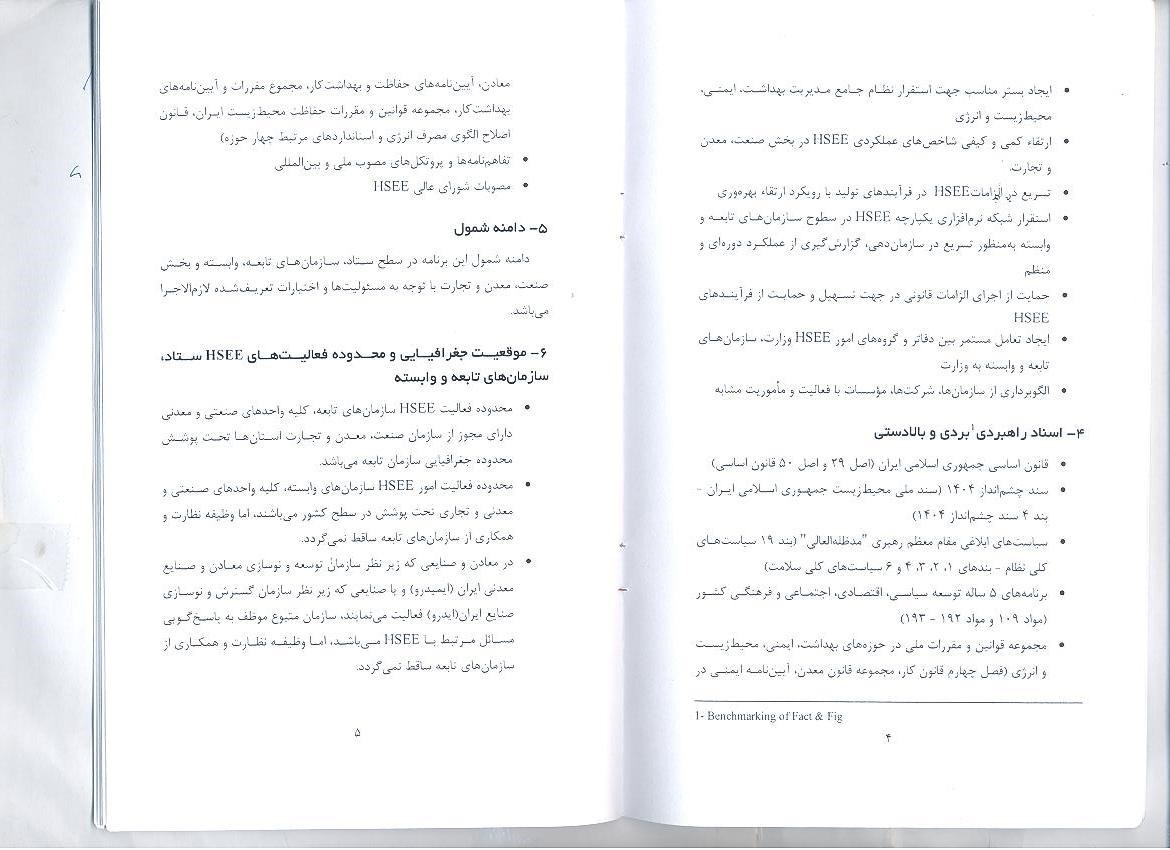 • ایجاد بستر مناسب جهت استقرار نظام جامع مدیریت بهداشت، ایمنی،
محیط‌زیست و انرژی
• ارتقاء کمی و کیفی شاخص‌های عملکردی HSEE در بخش صنعت، معدن
و تجارت.
• تسریع در الزامات HSEE در فرآیندهای تولید با رویکرد ارتقاء بهره‌وری
• استقرار شبکه نرم‌افزاری یکپارچه HSEE در سطوح سازمان‌های تابعه و
وابسته به‌منظور تسریع در سازمان‌دهی، گزارش‌گیری از عملکرد دوره‌ای و
منظم
• حمایت از اجرای الزامات قانونی در جهت تسهیل و حمایت از فرآیندهای
HSEE
• ایجاد تعامل مستمر بین دفاتر و گروه‌های امور HSEE وزارت، سازمان‌های
تابعه و وابسته به وزارت
• الگوبرداری از سازمان‌ها، شرکت‌ها، مؤسسات با فعالیت و مأموریت مشابه
۴- اسناد راهبردی¹ بردی و بالادستی
• قانون اساسی جمهوری اسلامی ایران (اصل ۲۹ و اصل ۵۰ قانون اساسی)
• سند چشم‌انداز ۱۴۰۴ (سند ملی محیط‌زیست جمهوری اسلامی ایران -
بند ۴ سند چشم‌انداز ۱۴۰۴)
• سیاست‌های ابلاغی مقام معظم رهبری "مدظله‌العالی" (بند ۱۹ سیاست‌های
کلی نظام - بندهای ۱، ۲، ۳، ۴ و ۶ سیاست‌های کلی سلامت)
• برنامه‌های ۵ ساله توسعه سیاسی، اقتصادی، اجتماعی و فرهنگی کشور
(مواد ۱۰۹ و مواد ۱۹۲ - ۱۹۳)
• مجموعه قوانین و مقررات ملی در حوزه‌های بهداشت، ایمنی، محیط‌زیست
و انرژی (فصل چهارم قانون کار، مجموعه قانون معدن، آیین‌نامه ایمنی در
1- Benchmarking of Fact & Fig
۴
معادن، آیین‌نامه‌های حفاظت و بهداشت کار، مجموع مقررات و آیین‌نامه‌های
بهداشت کار، مجموعه قوانین و مقررات حفاظت محیط‌زیست ایران، قانون
اصلاح الگوی مصرف انرژی و استانداردهای مرتبط چهار حوزه)
• تفاهم‌نامه‌ها و پروتکل‌های مصوب ملی و بین‌المللی
• مصوبات شورای عالی HSEE
۵- دامنه شمول
دامنه شمول این برنامه در سطح ستاد، سازمان‌های تابعه، وابسته و بخش
صنعت، معدن و تجارت با توجه به مسئولیت‌ها و اختیارات تعریف‌شده لازم‌الاجرا
می‌باشد.
۶- موقعیت جغرافیایی و محدوده فعالیت‌های HSEE ستاد،
سازمان‌های تابعه و وابسته
• محدوده فعالیت HSEE سازمان‌های تابعه، کلیه واحدهای صنعتی و معدنی
دارای مجوز از سازمان صنعت، معدن و تجارت استان‌ها تحت پوشش
محدوده جغرافیایی سازمان تابعه می‌باشد.
• محدوده فعالیت امور HSEE سازمان‌های وابسته، کلیه واحدهای صنعتی و
معدنی و تجاری تحت پوشش در سطح کشور می‌باشند، اما وظیفه نظارت و
همکاری از سازمان‌های تابعه ساقط نمی‌گردد.
• در معادن و صنایعی که زیر نظر سازمان توسعه و نوسازی معادن و صنایع
معدنی ایران (ایمیدرو) و یا صنایعی که زیر نظر سازمان گسترش و نوسازی
صنایع ایران(ایدرو) فعالیت می‌نمایند، سازمان متبوع موظف به پاسخ‌گویی
مسائل مرتبط با HSEE می‌باشد، اما وظیفه نظارت و همکاری از
سازمان‌های تابعه ساقط نمی‌گردد.
۵